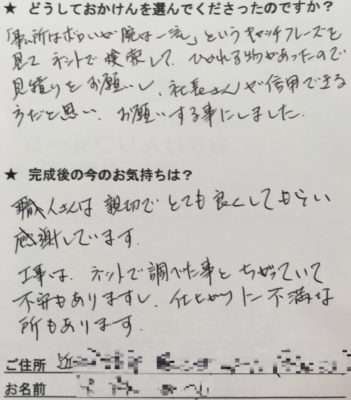 ★ どうしておかけんを選んでくださったのですか?
「事ム所はボロいが腕は一流」というキャッチフレーズを
見てネットで検索して、ひかれる物があったので
見積りをお願いし、社長さんが信用できる
方だと思い、お願いする事にしました。
★ 完成後の今のお気持ちは?
職人さんは親切でとても良くしてもらい
感謝しています。
工事は、ネットで調べた事とちがっていて
不安もありますし、仕上がりに不満な
所もあります。
ご住所 近
お名前